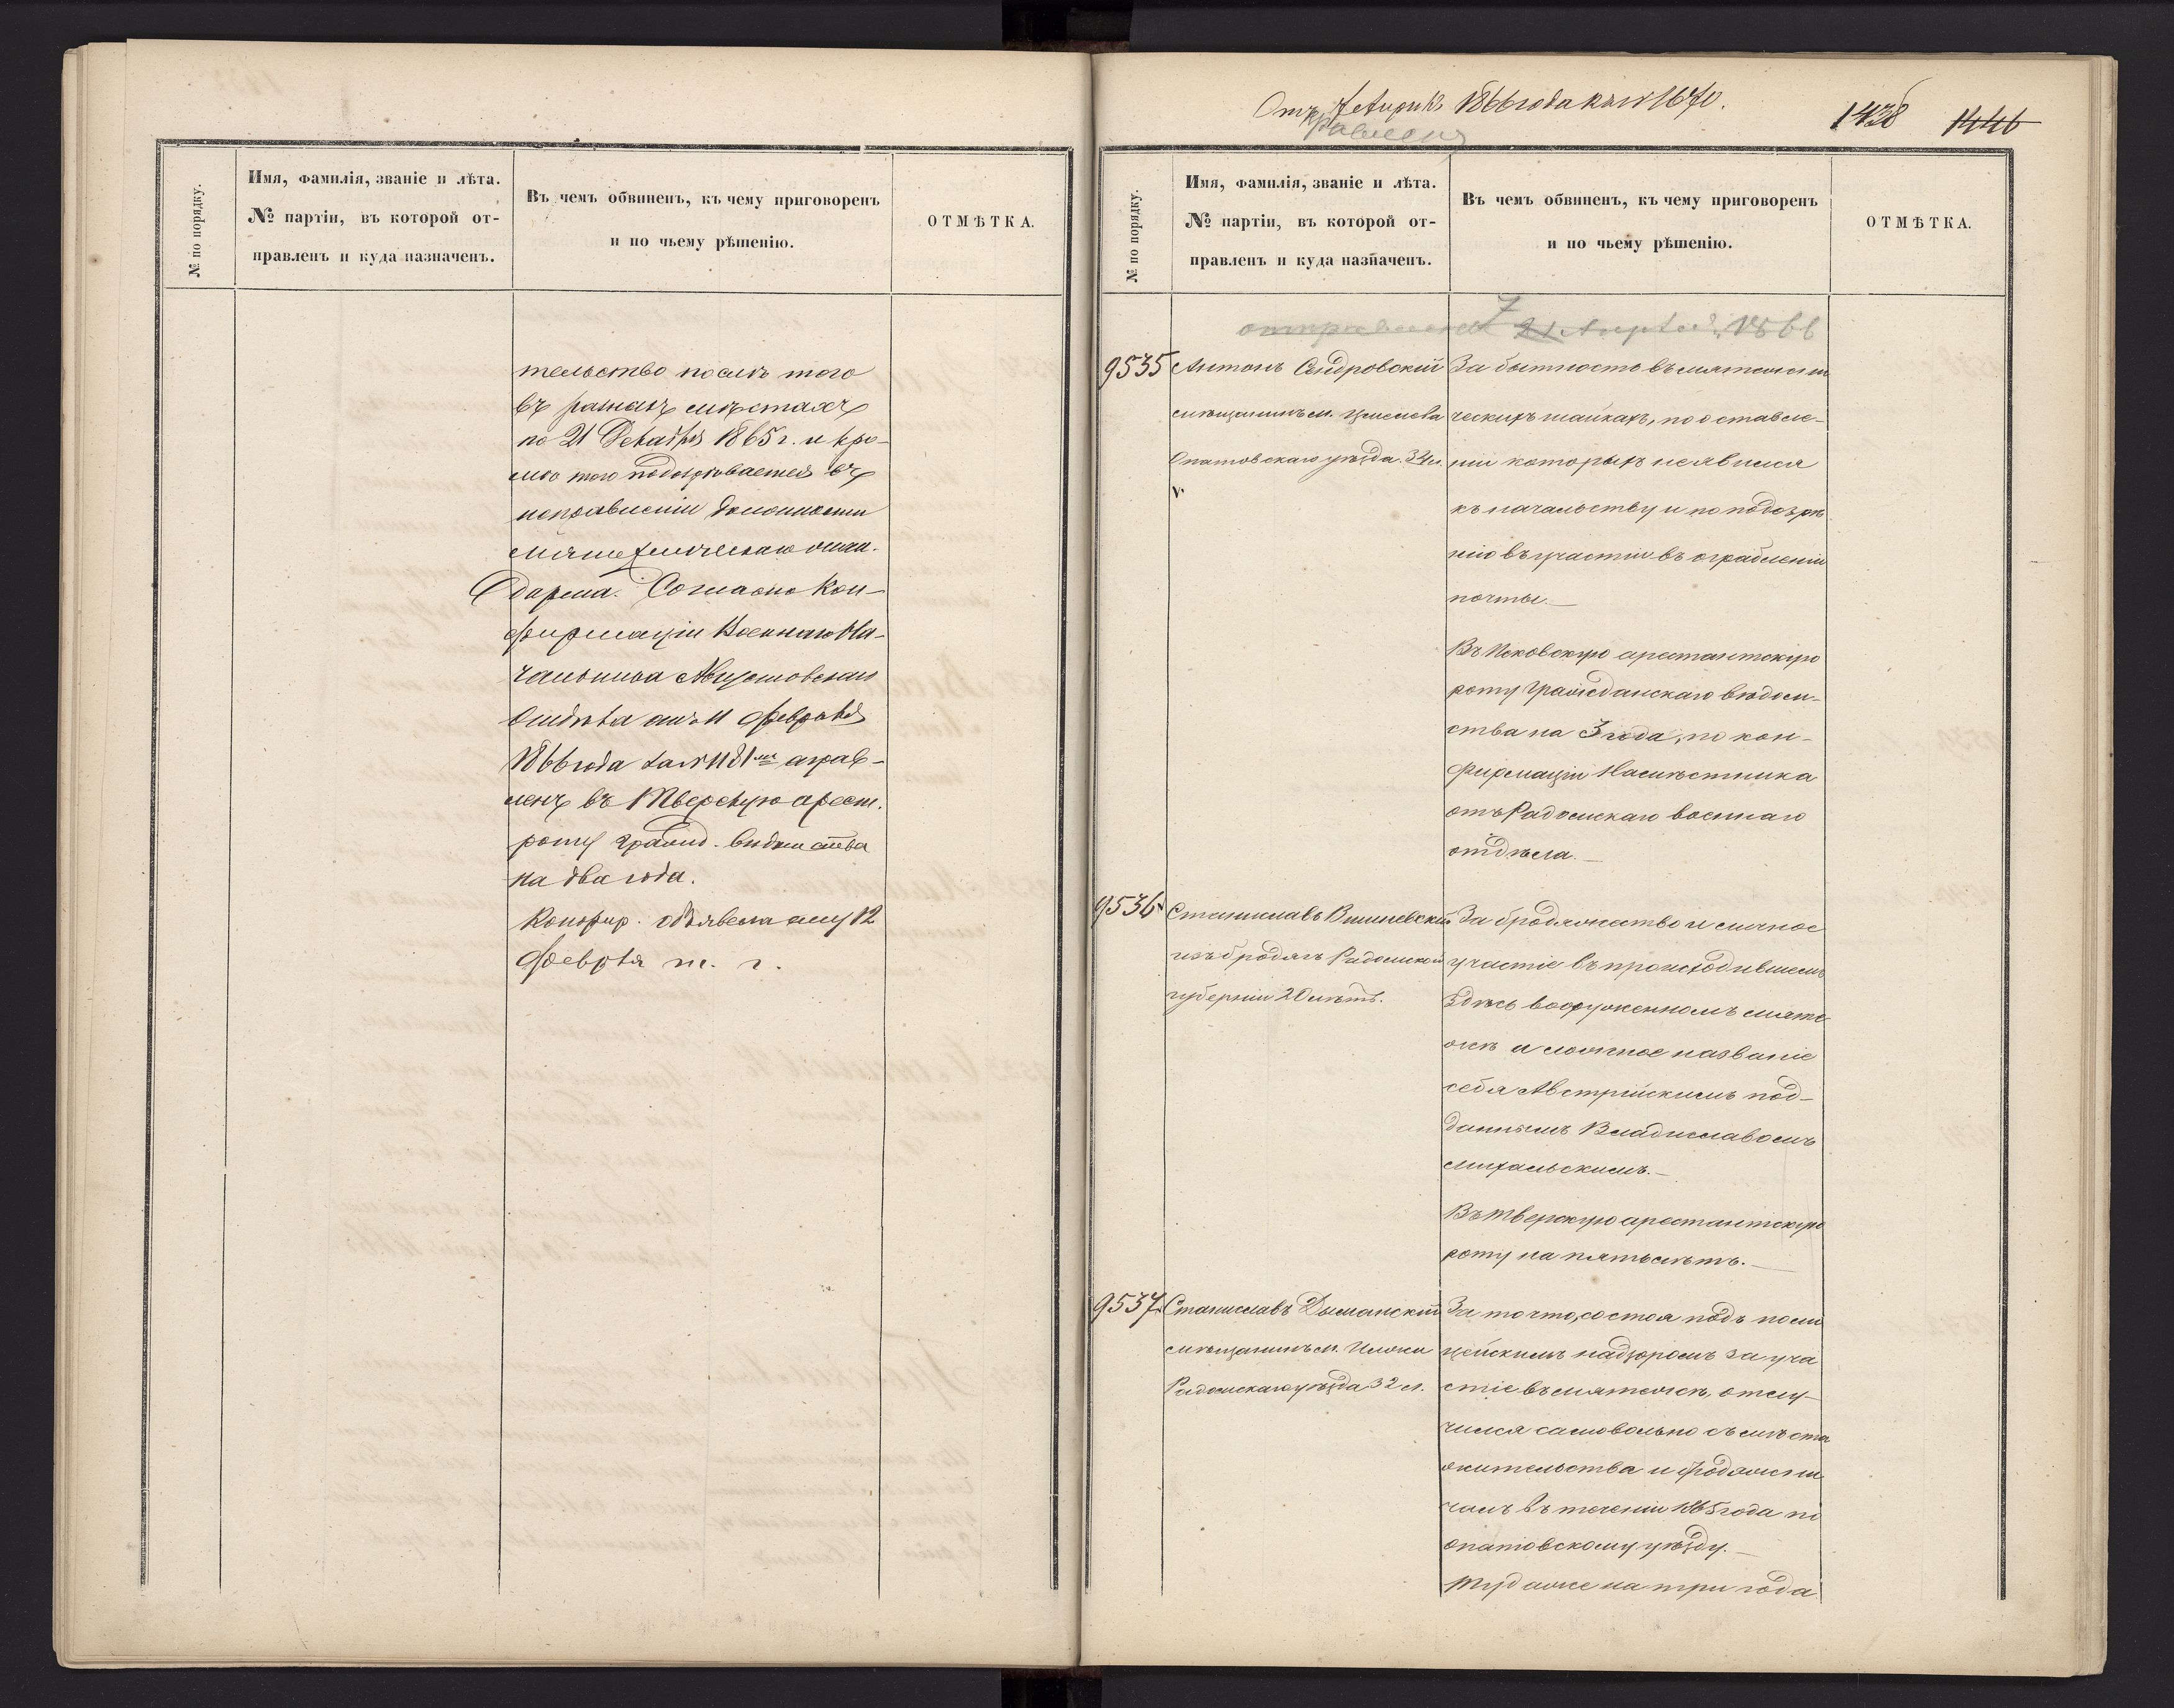 № по порядку.
Имя, фамилія, званіе и лѣта.
№ партіи, въ которой от-
правленъ и куда назначенъ.
Въ чемъ обвиненъ, къ чему приговоренъ
и по чьему рѣшенію.
ОТМѢТКА.
тельство послѣ того
въ разныхъ мѣстахъ
по 21 Декабря 1865 г. и кро-
мѣ того подозрѣвается въ
исправленіи должности
мятежническаго жан-
дарма. Согласно Кон-
фирмаціи Военнаго На-
чальника Августовскаго
Отдѣла отъ 11 Февраля
1866 года за № 1181 отправ-
ленъ въ Тверскую арест.
роту гражд. вѣдомства
на два года.
Конфир. объявлена ему 12
Февраля т. г.
Отъ 7 Апрѣля 1866 года за № 1670.
1438 1446
№ по порядку.
Имя, фамилія, званіе и лѣта.
№ партіи, въ которой от-
правленъ и куда назначенъ.
Въ чемъ обвиненъ, къ чему приговоренъ
и по чьему рѣшенію.
ОТМѢТКА.
отправленъ 7 21 Апрѣля 1866
9535 Антонъ Сендровскій
мѣщанинъ м.
Опатовскаго уѣзда. 34 л.
За бытность въ мятежни-
ческихъ шайкахъ, по оставле-
ніи которыхъ не явился
къ начальству и по подозрѣ
нію въ участіи въ ограбленіи
почты.—
Въ Псковскую арестантскую
роту Гражданскаго вѣдом-
ства на 3 года, по кон-
фирмаціи Намѣстника
отъ Радомскаго военнаго
отдѣла.—
9536 Станиславъ Вишневскій
изъ бродягъ Радомской
губерніи 20 лѣтъ.
За бродяжество и личное
участіе въ происходившемъ
здѣсь вооруженномъ мяте
жѣ и ложное названіе
себя Австрійскимъ под-
даннымъ Владиславомъ
Михальскимъ.—
Въ Тверскую арестантскую
роту на пять лѣтъ.—
9537 Станиславъ Дыманскій
мѣщанинъ м. Илжи
Радомскаго уѣзда 32 л.
За то что, состоя подъ поли
цейскимъ надзоромъ за уча
стіе въ мятежѣ, отлу-
чился самовольно съ мѣста
жительства и бродяжни
чалъ въ теченіи 1865 года по
Опатовскому уѣзду.—
Туда же на три года